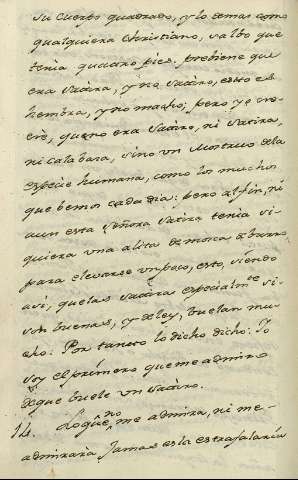 su cuerpo quadrado, y lo demas como
qualquiera Christiano, salbo que
tenia quatro pies. prebiene que
era Satira, y no Satiro, esto es
hembra, y no macho; pero yo cre
eré, que no era Satiro, ni Satira,
ni calabasa, sino un Mostruo de la
especie humana, como los muchos
que bemos cada dia: pero al fin, ni
aun esta Señora Satira tenia si-
quiera una alita de mosca ô burro
para elevarse un poco, esto, siendo
asi, que las Satiras especialmte si
son buenas, y de ley, buelan mu-
cho: Por tanto lo dicho dicho: Yo
soy el primero que me admiro
de que buele un Satiro.
14. Lo qûe no me admira, ni me
admirarà Jamas es la estrafalaria